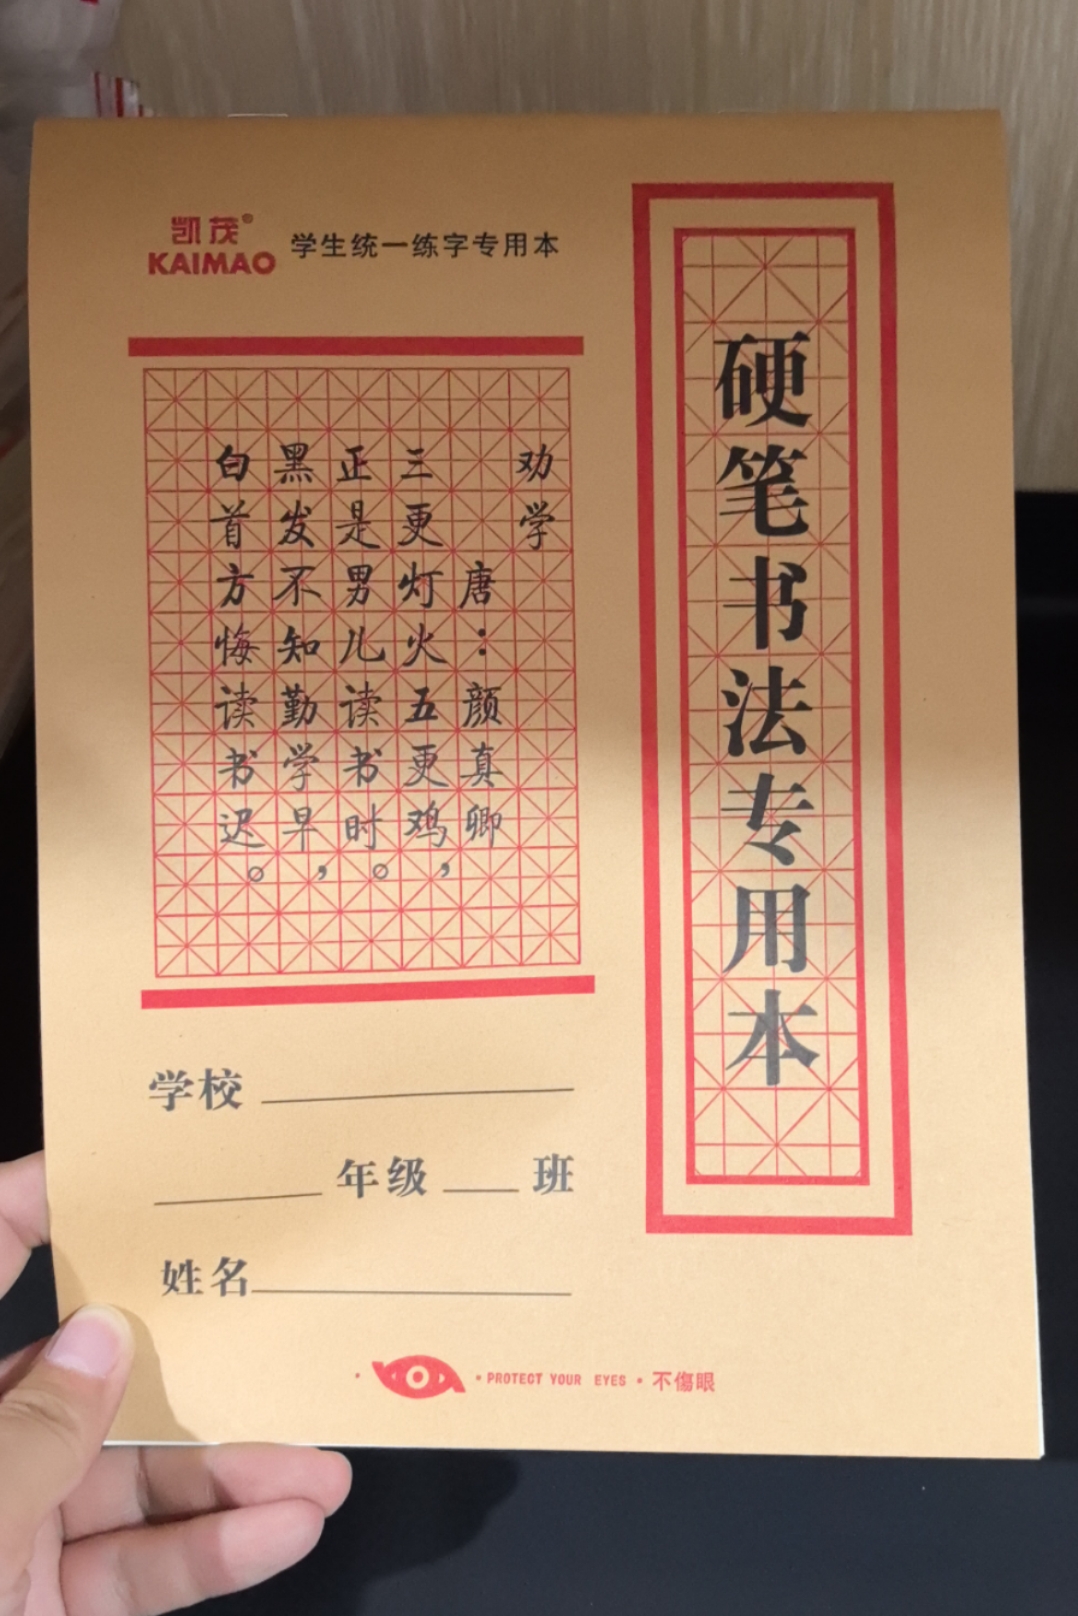 凯茂®
KAIMAO
学生统一练字专用本
硬笔书法专用本
劝学
唐：颜真卿
三更灯火五更鸡，
正是男儿读书时。
黑发不知勤学早，
白首方悔读书迟。
学校
年级 班
姓名
·PROTECT YOUR EYES·不傷眼